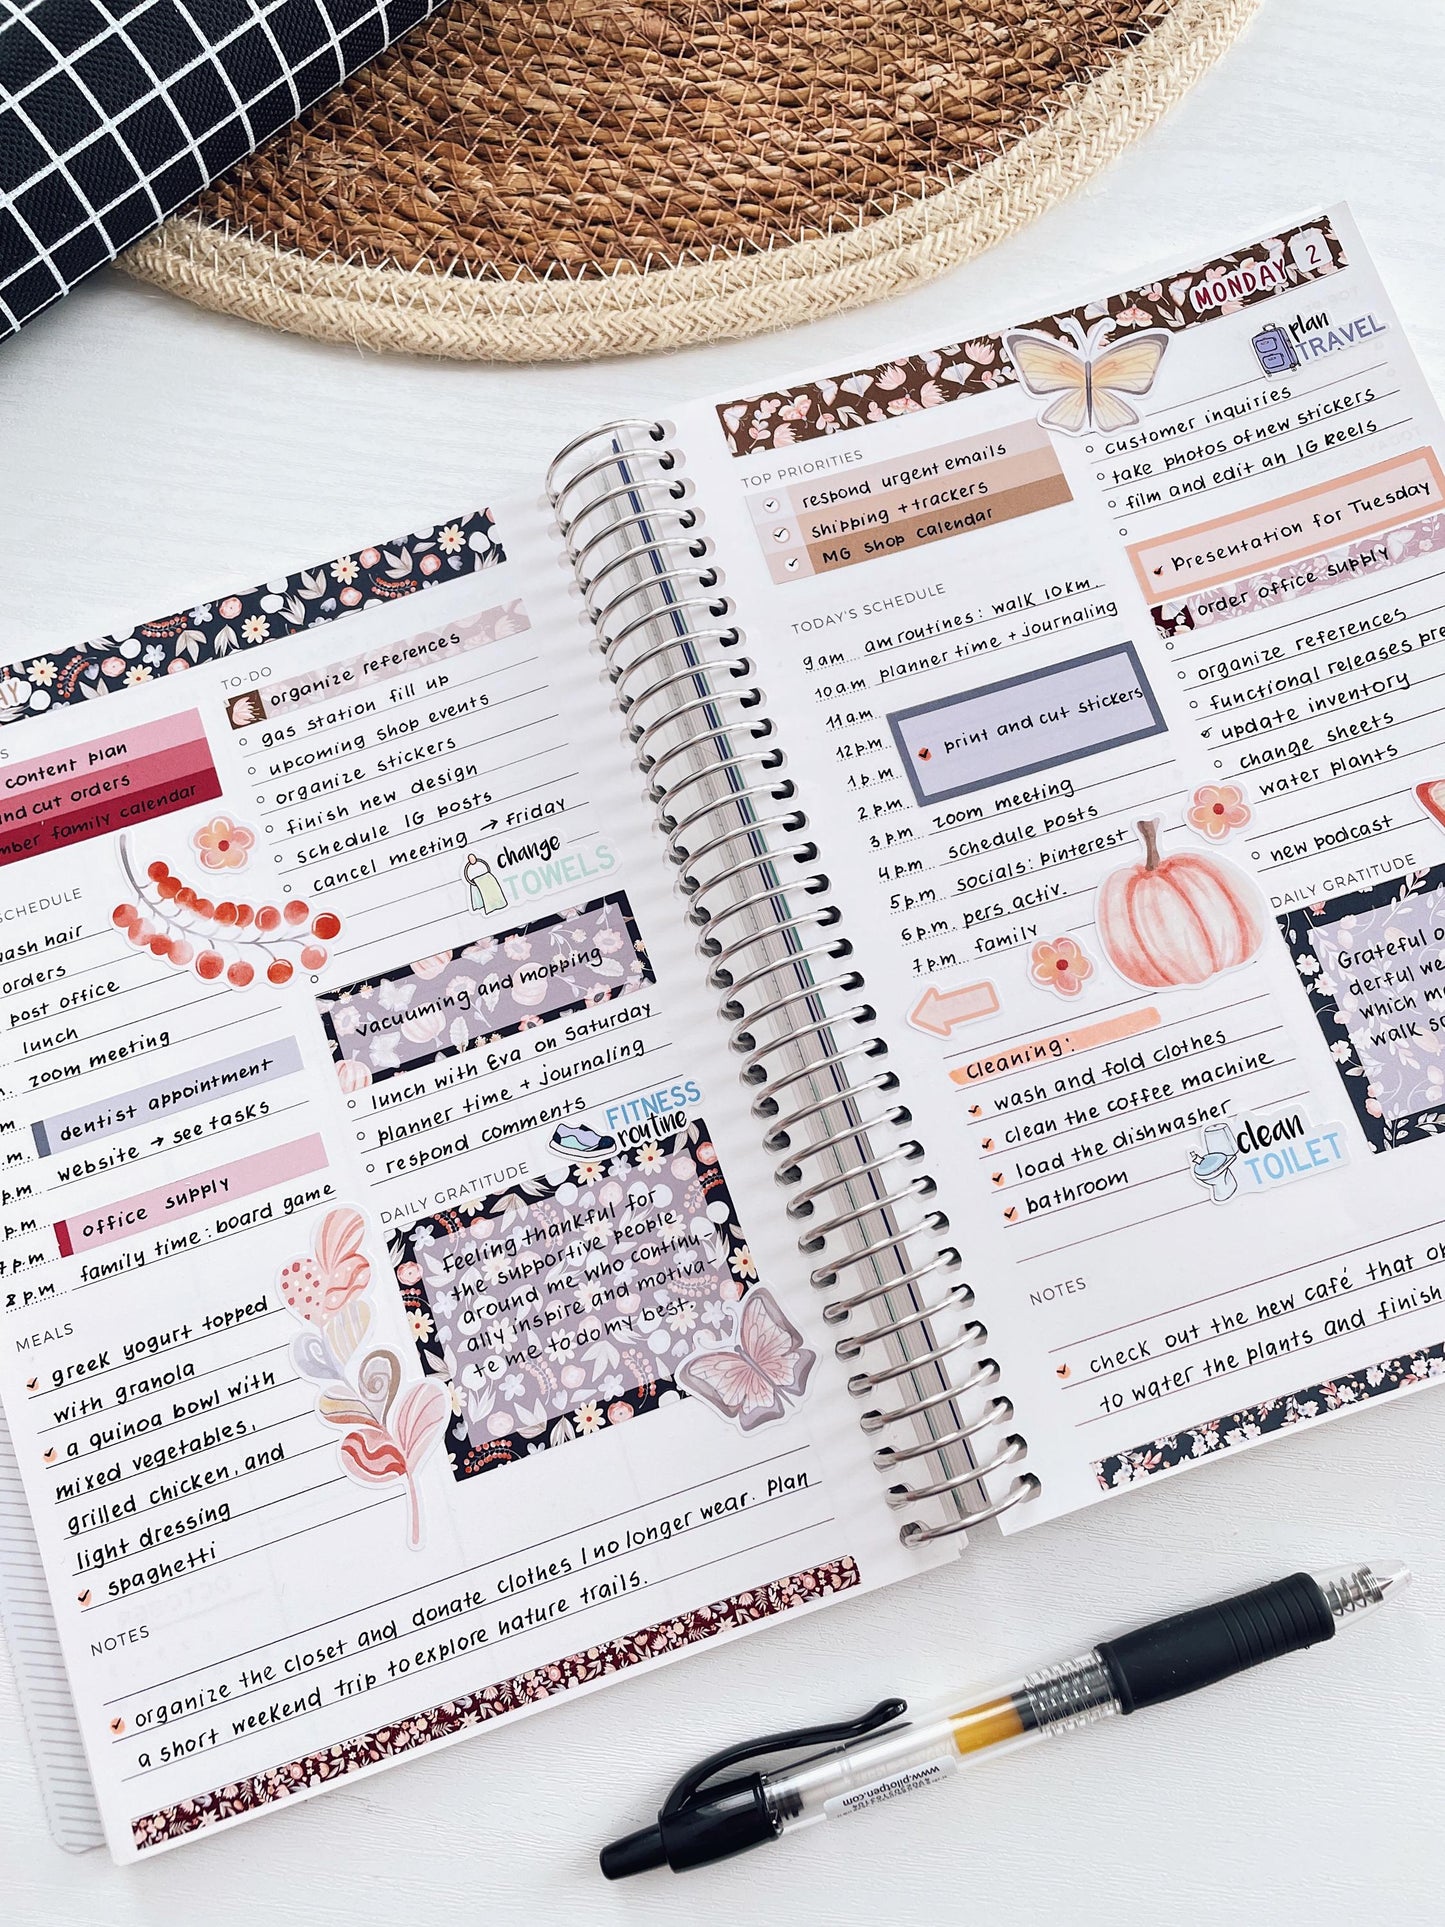 AY
S
content plan
and cut orders
mber family calendar
SCHEDULE
wash hair
orders
post office
lunch
zoom meeting
dentist appointment
website → see tasks
office supply
7 p.m. family time: board game
8 p.m.
MEALS
greek yogurt topped
with granola
a quinoa bowl with
mixed vegetables,
grilled chicken, and
light dressing
spaghetti
TO-DO
organize references
gas station fill up
upcoming shop events
organize stickers
finish new design
schedule IG posts
cancel meeting → friday
change
TOWELS
vacuuming and mopping
lunch with Eva on Saturday
planner time + journaling
respond comments
FITNESS
routine
DAILY GRATITUDE
Feeling thankful for
the supportive people
around me who continu-
ally inspire and motiva-
te me to do my best.
NOTES
organize the closet and donate clothes I no longer wear. Plan
a short weekend trip to explore nature trails.
MONDAY 2
TOP PRIORITIES
respond urgent emails
shipping + trackers
MG shop calendar
TODAY'S SCHEDULE
9 am am routines: walk 10 km.
10 a.m planner time + journaling
11 a.m
12 p.m print and cut stickers
1 p.m
2 p.m
3 p.m zoom meeting
4 p.m schedule posts
5 p.m socials: pinterest
6 p.m pers. activ.
7 p.m family
Cleaning:
wash and fold clothes
clean the coffee machine
load the dishwasher
bathroom
clean
TOILET
plan
TRAVEL
customer inquiries
take photos of new stickers
film and edit an IG Reels
Presentation for Tuesday
order office supply
organize references
functional releases pre
update inventory
change sheets
water plants
new podcast
DAILY GRATITUDE
Grateful o
derful we
which m
walk s
NOTES
check out the new café that o
to water the plants and finish
www.pilotpen.com